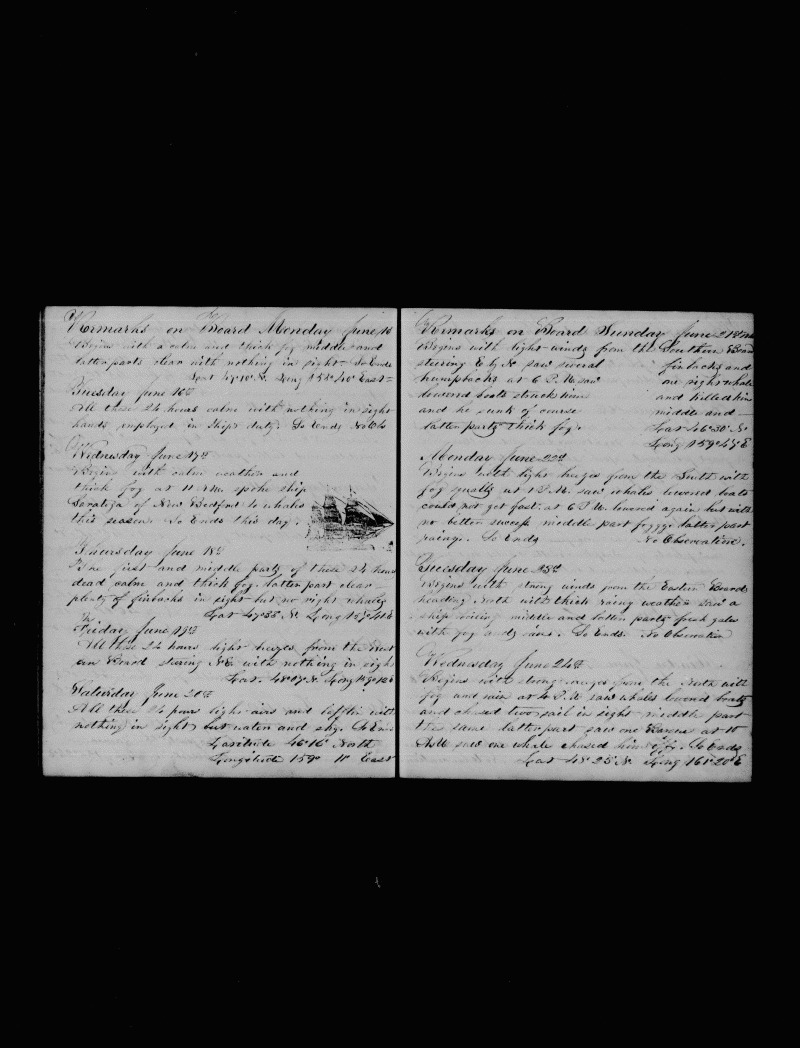 Remarks on Board Monday June 15
Begins with a calm and thick fog middle and
latter parts clear with nothing in sight So Ends
Lat 47° 10' N. Long 158° 40' East
Tuesday June 16th
All these 24 hours calm with nothing in sight
hands employed in ships duty. So Ends No Obs
Wednesday June 17th
Begins with calm weather and
thick fog at 11 A.M. spoke ship
Saratoga of New Bedford 10 whales
this season. So Ends this day.
Thursday June 18th
The first and middle party of these 24 hours
dead calm and thick fog. latter part clear
plenty of finbacks in sight but no right whales
Lat 47° 55' N. Long 157° 41' E
Friday June 19th
All these 24 hours light breezes from the
ern Board stering NE with nothing in sight
Lat. 48° 07' N. Long
Saturday June 20th
All these 24 hours light airs and baffling with
nothing in sight but water and sky. So Ends
Latitude 46° 16' North
Longitude 159° 11' East
Remarks on Board Sunday June 21st
Begins with light winds from the Southern Board
steering E by N saw several finbacks and
humpbacks at 6 P.M. saw one right whale
lowered boats struck him and killed him
and he sunk of course middle and
latter party thick fog. Lat 46° 30' N.
Long 159° 47' E
Monday June 22nd
Begins with light breezes from the South with
fog squalls at 1 P.M. saw whales lowered boats
could not get fast. at 6 P.M. lowered again but with
no better success middle part foggy latter part
rainy. So Ends No Observation.
Tuesday June 23rd
Begins with strong winds from the Eastern Board
heading North with thick rainy weather saw a
ship middle and latter party fresh gales
with fog and rain. So Ends. No Observation
Wednesday June 24th
Begins with strong winds from the North with
fog and rain at 4 P.M. saw whales lowered boats
and chased two sail in sight middle part
the same latter part saw one at 10
A.M. saw one whale chased him off. So Ends
Lat 48° 25' N. Long 161° 20' E